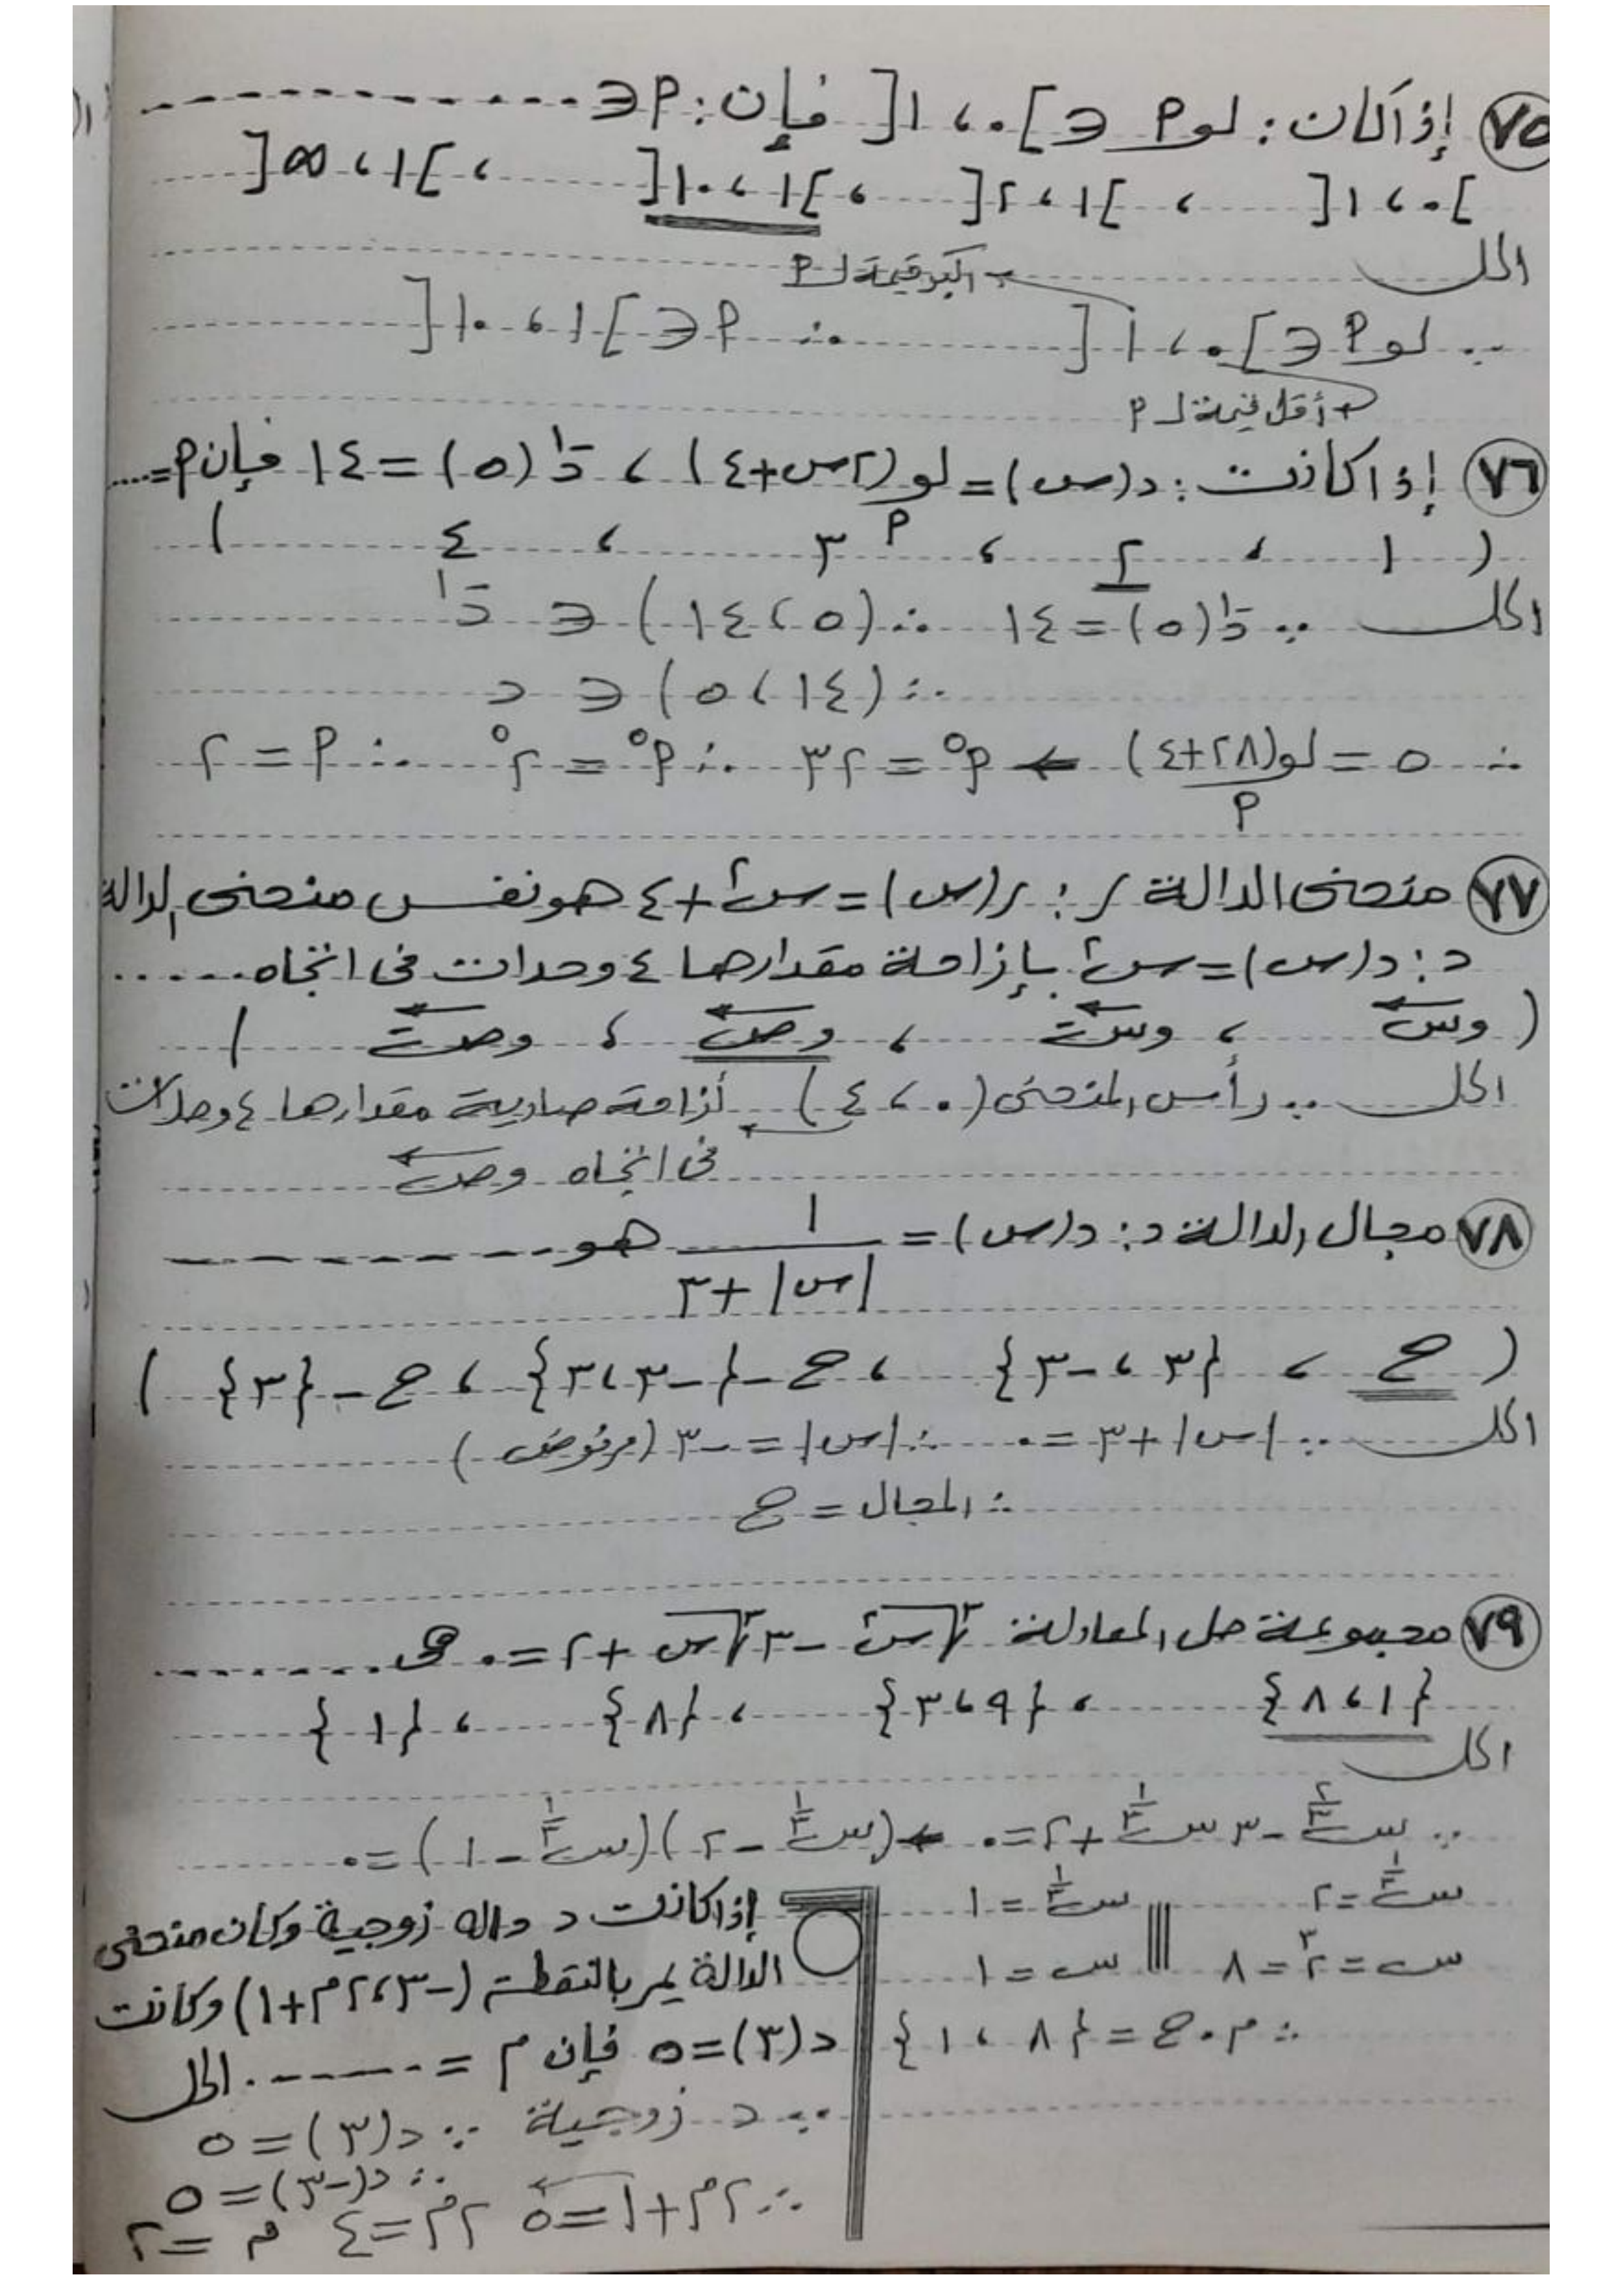 ٧٥ إذا كان : لو م ∈ ]٠ ، ١[ فإن : م ∈ ------------
]٠ ، ١[ ، ]١ ، ٢[ ، ]١ ، ١٠[ ، ]١ ، ∞[
الحل
أكبر قيمة لـ م
∵ لو م ∈ ]٠ ، ١[ ∴ م ∈ ]١ ، ١٠[
أقل قيمة لـ م
٧٦ إذا كانت : د(س) = لو (٢س+٤) ، د⁻¹(٥) = ١٤ فإن م = .....
م
( ١ ، ٢ ، ٣ ، ٤ )
الحل ∵ د⁻¹(٥) = ١٤ ∴ (٥ ، ١٤) ∈ د⁻¹
∴ (١٤ ، ٥) ∈ د
∴ ٥ = لو(٢٨+٤) ← م⁵ = ٣٢ ∴ م⁵ = ٢⁵ ∴ م = ٢
م
٧٧ منحنى الدالة ر : ر(س) = س² + ٤ هو نفس منحنى الدالة
د : د(س) = س² بإزاحة مقدارها ٤ وحدات فى اتجاه ......
( وس ، وسَ ، وص ، وصَ )
الحل ∵ رأس المنحنى (٠ ، ٤) أزاحة صادية مقدارها ٤ وحدات
فى اتجاه وص
٧٨ مجال الدالة د : د(س) = ١ / (|س| + ٣) هو ------------
( ح ، {٣ ، -٣} ، ح - {-٣ ، ٣} ، ح - {٣} )
الحل ∵ |س| + ٣ = ٠ ∴ |س| = -٣ (مرفوض)
∴ المجال = ح
٧٩ مجموعة حل المعادلة ∛س² - ٣∛س + ٢ = ٠ هى ..........
{١ ، ٨} ، {٩ ، ٣} ، {٨} ، {١}
الحل
∵ س^⅔ - ٣ س^⅓ + ٢ = ٠ ← (س^⅓ - ٢)(س^⅓ - ١) = ٠
س^⅓ = ٢ س^⅓ = ١
س = ٢³ = ٨ س = ١
∴ م.ح = {٨ ، ١}
إذا كانت د داله زوجية وكان منحنى
الدالة يمر بالنقطة (-٣ ، ٢م+١) وكانت
د(٣) = ٥ فإن م = -------. الحل
∵ د زوجية ∵ د(٣) = ٥
∴ د(-٣) = ٥
∴ ٢م + ١ = ٥ ٢م = ٤ م = ٢